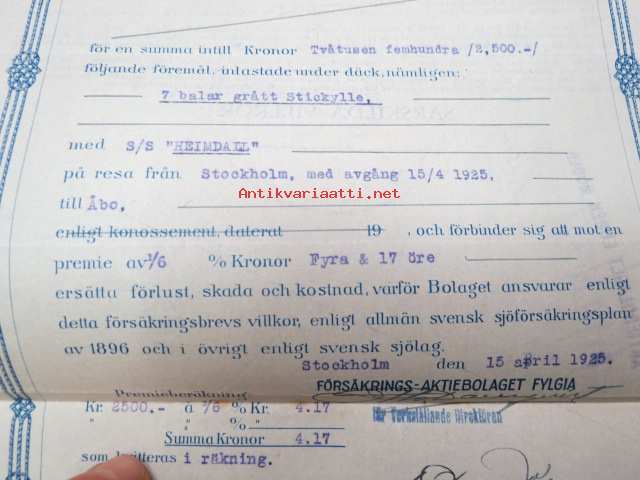 för en summa intill Kronor Tvåtusen femhundra /2,500.-/
följande föremål, inlastade under däck, nämligen:
7 balar grått Stickylle,
med S/S "HEIMDALL"
på resa från Stockholm, med avgång 15/4 1925,
Antikvariaatti.net
till Åbo,
enligt konossement, daterat 19 , och förbinder sig att mot en
premie av 1/6 % Kronor Fyra & 17 öre
ersätta förlust, skada och kostnad, varför Bolaget ansvarar enligt
detta försäkringsbrevs villkor, enligt allmän svensk sjöförsäkringsplan
av 1896 och i övrigt enligt svensk sjölag.
Stockholm den 15 april 1925.
FÖRSÄKRINGS-AKTIEBOLAGET FYLGIA
för Verkställande Direktören
Premieberäkning
Kr. 2500.- à 1/6 % Kr. 4.17
" " % "
Summa Kronor 4.17
som kvitteras i räkning.